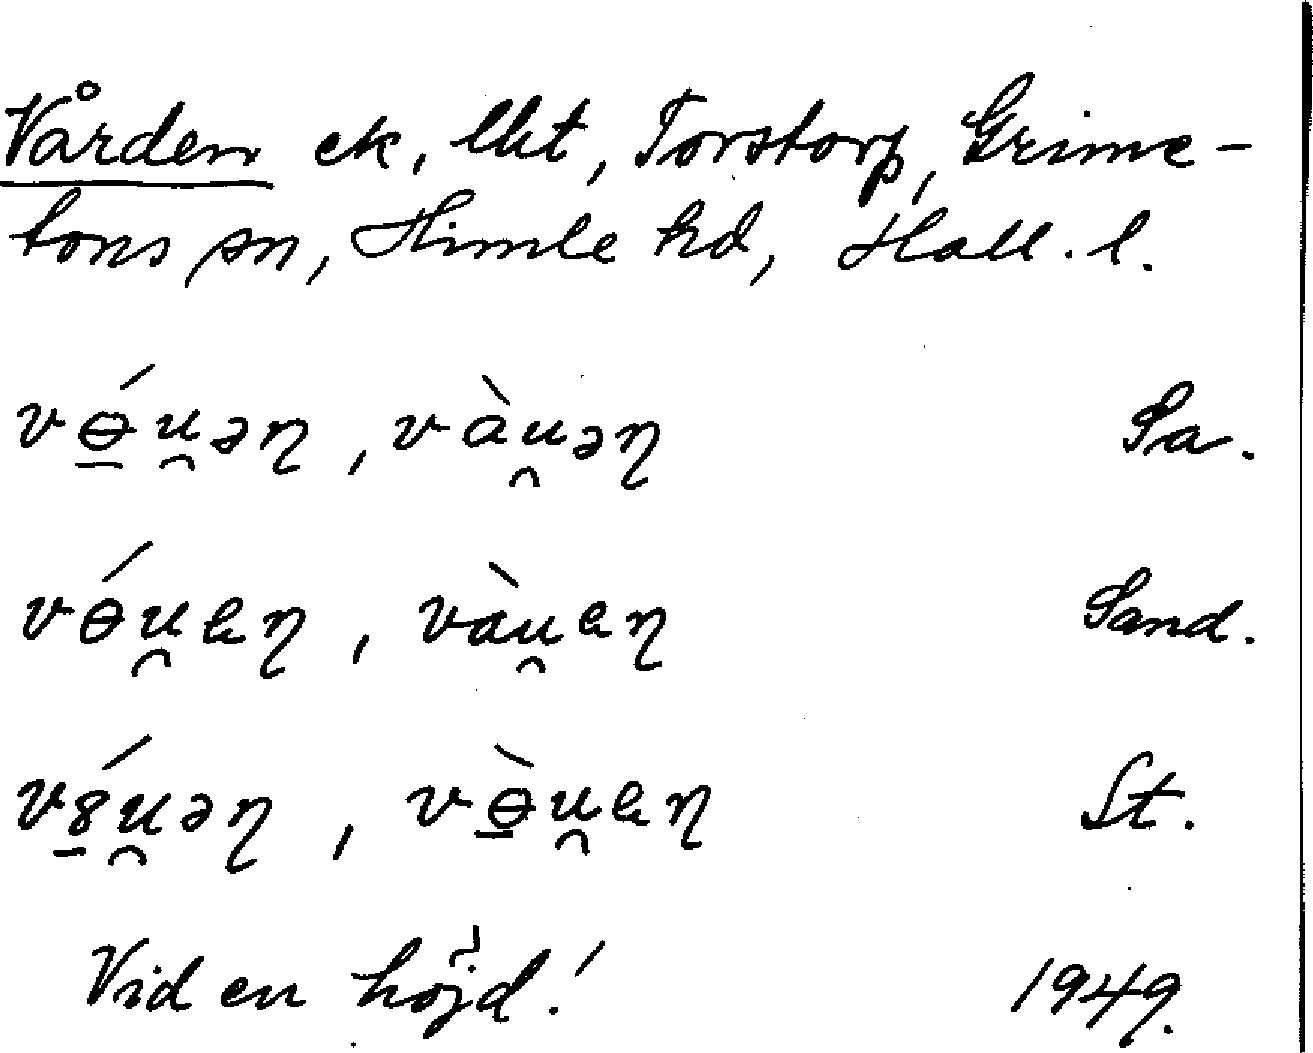 Vården ek, lht, Torstorp, Grime-
tons sn, Himle hd, Hall. l.
vɵ̲́u̯əη, vàu̯əη Sa.
vɵ́u̯eη, vàu̯eη Sand.
v8̲́u̯əη, vɵ̲̀u̯eη St.
Vid en höjd.! 1949.